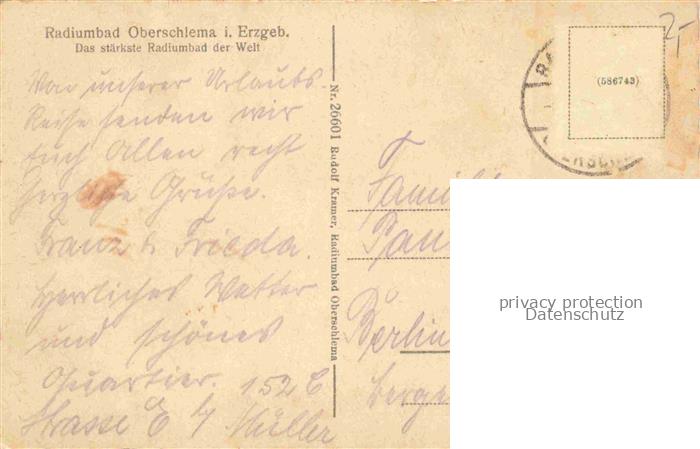 Radiumbad Oberschlema i. Erzgeb.
Das stärkste Radiumbad der Welt
Von unserer Urlaubs-
Reise senden wir
Euch Allen recht
herzliche Grüße.
Franz u. Frieda.
Herrliches Wetter
und schönes
Quartier. 152 E
Strasse E b/ Müller
Nr. 26601 Rudolf Kramer, Radiumbad Oberschlema
2,-
(586743)
Familie
Berlin
privacy protection
Datenschutz